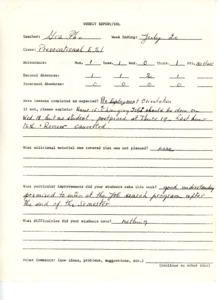 WEEKLY REPORT/ESL
Teacher: Hoa Ph. Week Ending: July 20
Class: Prevocational ESL
Attendance: Mon. 1 Tues. 1 Wed. 0 Thurs. 1 Fri.
Excused Absence: 1 1 2 1
Unexcused Absence: 0 0 0 0
Were lessons completed as expected? Pre Employment Orientation
If not, please explain: should be done on
Wed 18 but no student, postponed at Thurs 19. Last hour
Review cancelled
What additional material was covered that was not planned? none
What particular improvements did your students make this week? good understanding
promised to enter at the Job search program after
the end of the semester
What difficulties did your students have? nothing
Other comments: (new ideas, problems, suggestions, etc.)
(continue on other side)